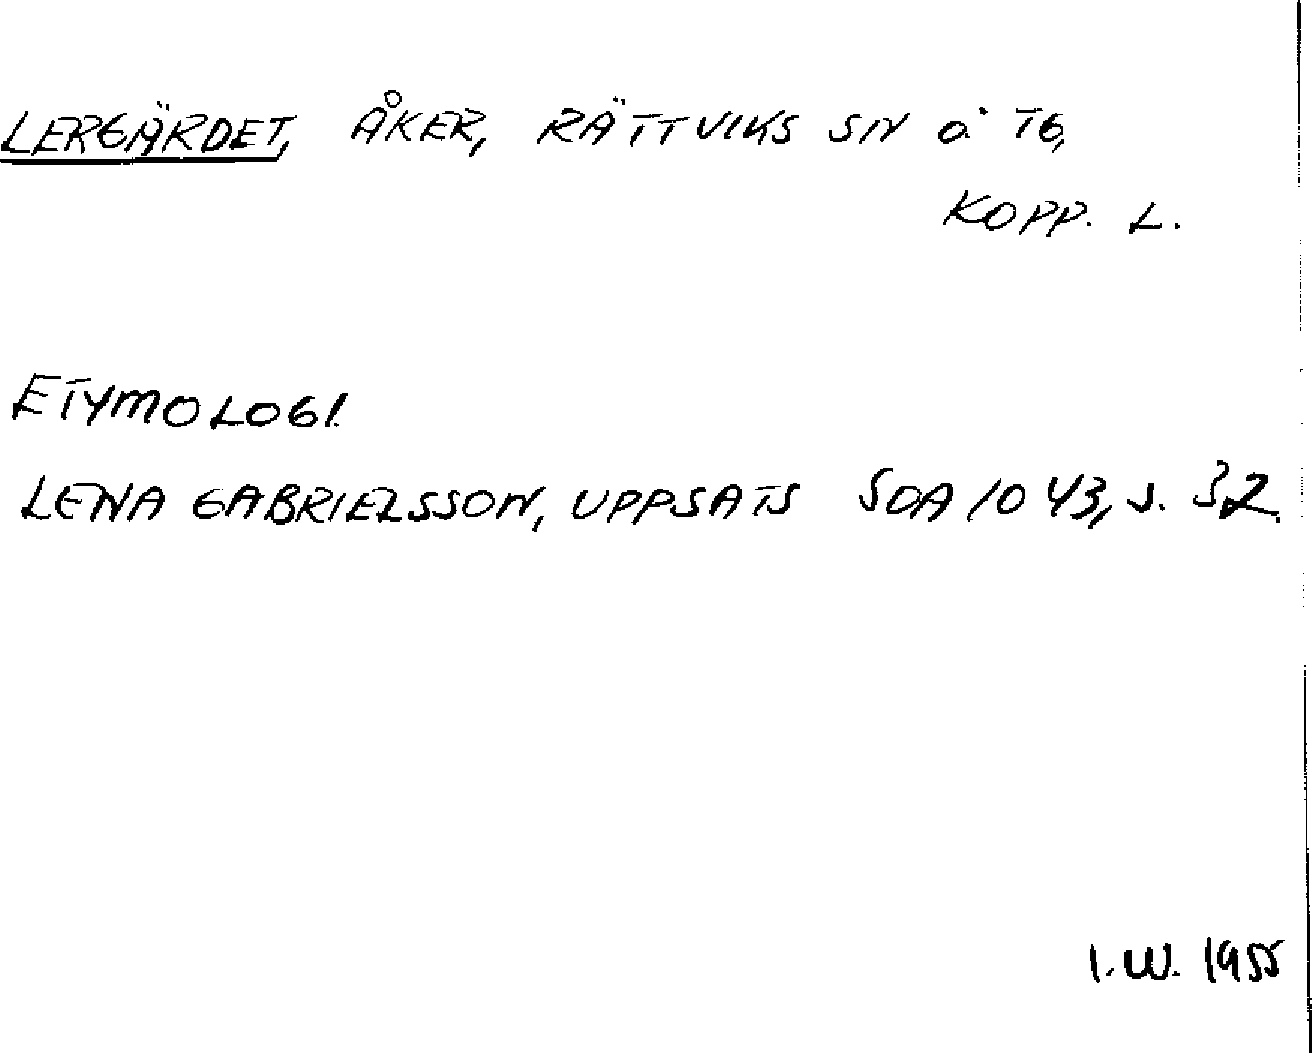 LERGÄRDET, ÅKER, RÄTTVIKS SN O. TG,
KOPP. L.
ETYMOLOGI.
LENA GABRIELSSON, UPPSATS SOA 1043, S. 32.
I.W. 1955